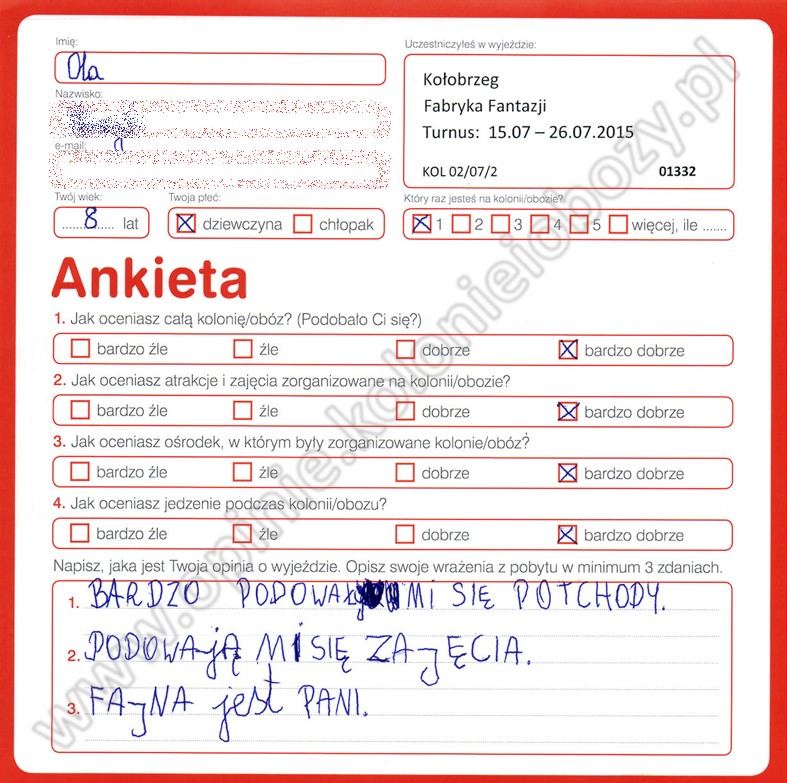 Imię:
Ola
Nazwisko:
e-mail:
Twój wiek:
8 lat
Twoja płeć:
dziewczyna chłopak
Uczestniczyłeś w wyjeździe:
Kołobrzeg
Fabryka Fantazji
Turnus: 15.07 – 26.07.2015
KOL 02/07/2 01332
Który raz jesteś na kolonii/obozie?
1 2 3 4 5 więcej, ile .......
Ankieta
1. Jak oceniasz całą kolonię/obóz? (Podobało Ci się?)
bardzo źle źle dobrze bardzo dobrze
2. Jak oceniasz atrakcje i zajęcia zorganizowane na kolonii/obozie?
bardzo źle źle dobrze bardzo dobrze
3. Jak oceniasz ośrodek, w którym były zorganizowane kolonie/obóz?
bardzo źle źle dobrze bardzo dobrze
4. Jak oceniasz jedzenie podczas kolonii/obozu?
bardzo źle źle dobrze bardzo dobrze
Napisz, jaka jest Twoja opinia o wyjeździe. Opisz swoje wrażenia z pobytu w minimum 3 zdaniach.
1. BARDZO PODOWAŁY MI SIĘ POTCHODY.
2. PODOWAjĄ MI SIĘ ZAjĘCIA.
3. FAjNA jest PANI.
www.opinie.kolonieiobozy.pl